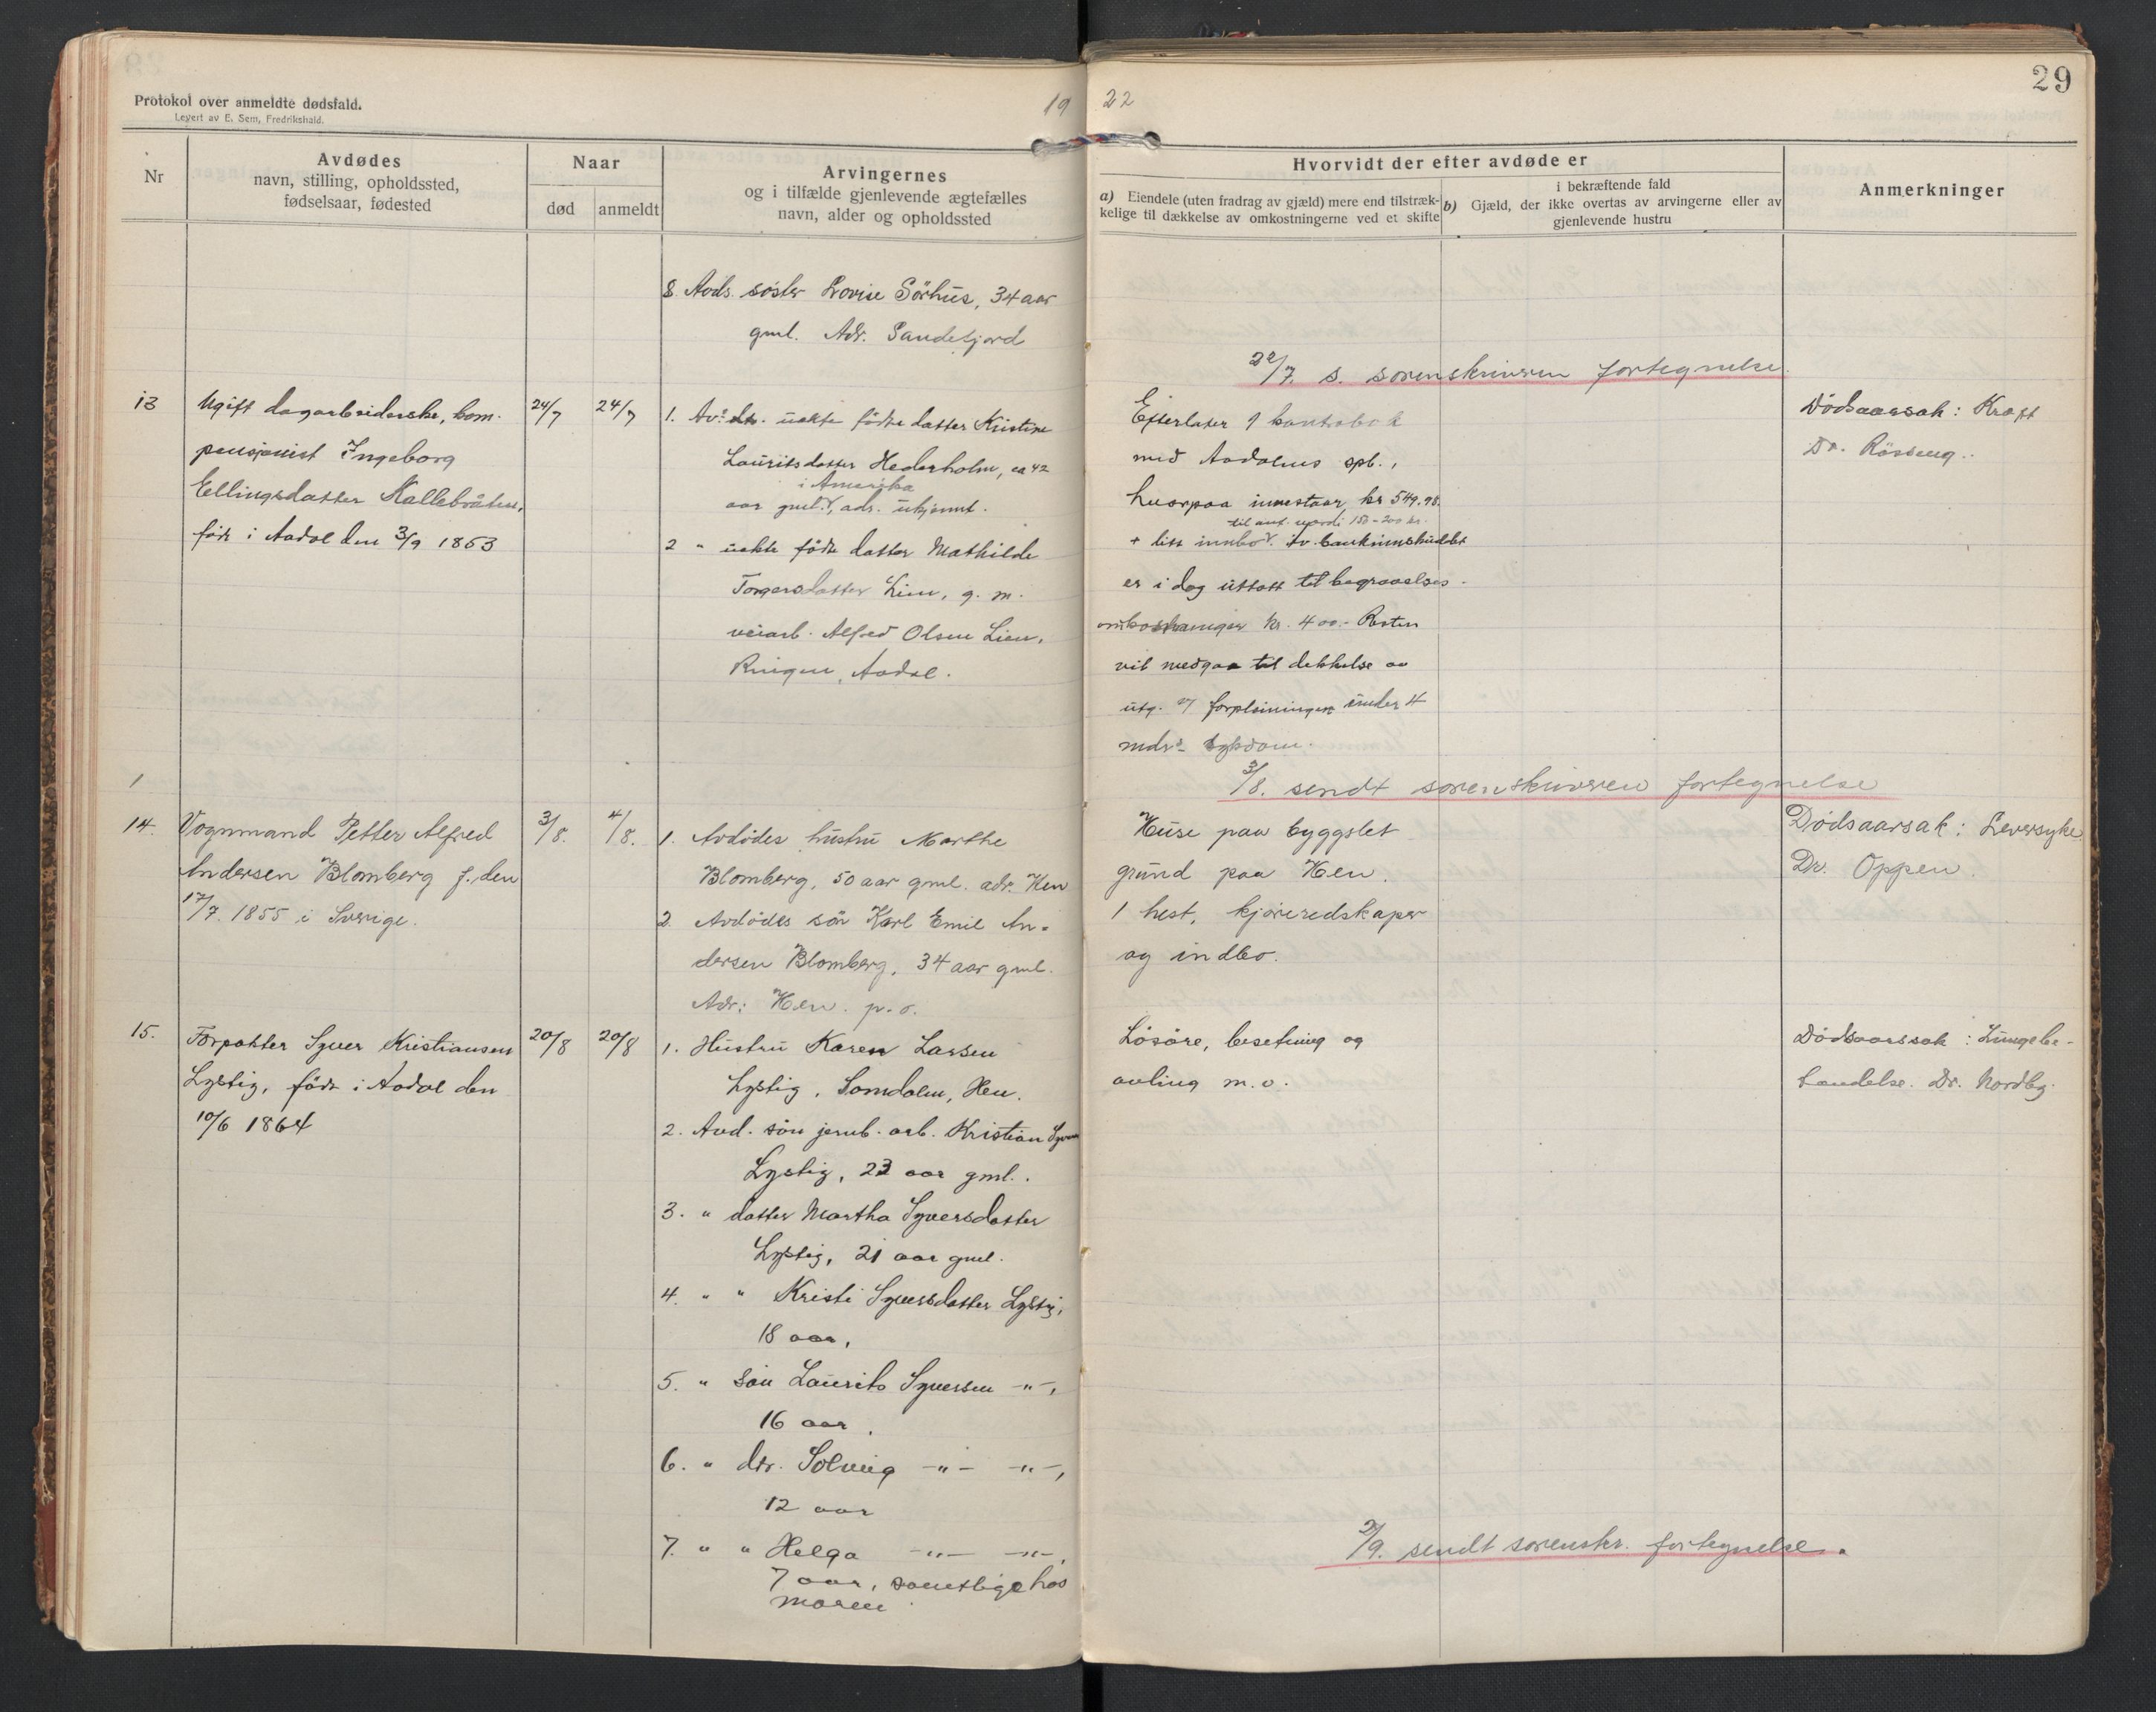 Protokol over anmeldte dødsfald.
Levert av E. Sem, Fredrikshald.
19 22
29
Nr
Avdødes
navn, stilling, opholdssted,
fødselsaar, fødested
Naar
død
anmeldt
Arvingernes
og i tilfælde gjenlevende ægtefælles
navn, alder og opholdssted
Hvorvidt der efter avdøde er
a) Eiendele (uten fradrag av gjæld) mere end tilstræk-
kelige til dækkelse av omkostningerne ved et skifte
i bekræftende fald
b) Gjæld, der ikke overtas av arvingerne eller av
gjenlevende hustru
Anmerkninger
8. Avds. søster Lovise Sörhus, 34 aar
gml. Adr. Sandefjord
22/7. s. sorenskriveren fortegnelse.
13
Ugift dagarbeiderske, kom.
pensjonist Ingeborg
Ellingsdatter Kallebråten,
født i Aadal den 3/9 1853
24/7
24/7
1. uekte födte datter Kristine
Lauritsdatter Hederholm, ca 42
i Amerika
aar gml., adr. ukjennt.
2 " uekte födte datter Mathilde
Torgersdatter Lien, g. m.
veiarb. Alfred Olsen Lien,
Ringen, Aadal.
Efterlater 1 kontrabok
med Aadalens spb.,
hvorpaa innestaar kr 549.98.
til ant. verdi 150-200 kr.
+ litt innbo. Av bankinnskuddet
er i dag uttatt til begravelses-
omkostninger kr. 400.- Resten
vil medgaa til dekkelse av
utg. v/ forpleiningen under 4
mdr's sykdom.
Dødsaarsak: Kræft
Dr. Rösseng.
3/8. sendt sorenskriveren fortegnelse
1
14.
Vognmand Petter Alfred
Andersen Blomberg f. den
17/7. 1855 i Sverige.
3/8.
4/8.
1. Avdødes hustru Marthe
Blomberg, 50 aar gml. adr. Hen
2. Avdødes sön Karl Emil An-
dersen Blomberg, 34 aar gml.
Adr: Hen. p. o.
Huse paa bygslet
grund paa Hen.
1 hest, kjøreredskaper
og indbo.
Dødsaarsak: Leversyke.
Dr. Oppen.
15.
Forpakter Syver Kristiansen
Lystig, födt i Aadal den
10/6 1864
20/8
20/8
1. Hustru Karen Larsen
Lystig, Somdalen, Hen.
2. Avd. sön jernb. arb. Kristian
Lystig, 23 aar gml.
3. " datter Martha Syversdatter
Lystig, 21 aar gml.
4. " " Kristi Syversdatter Lystig,
18 aar,
5. " sön Laurits Syversen -"-,
16 aar.
6. " dtr. Solveig -"- -"-,
12 aar
7. " " Helga -"- -"-,
7 aar, samtlige hos
moren.
Lösöre, besetning og
avling m. v.
Dödsaarsak: Lungebe-
tendelse. Dr. Nordby.
2/9. sendt sorenskr. fortegnelse.